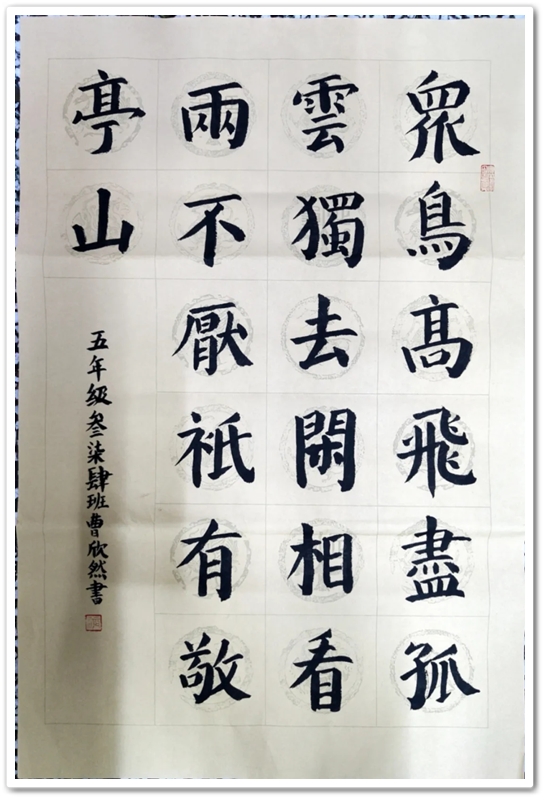 眾鳥高飛盡孤
雲獨去閑相看
兩不厭祗有敬
亭山
五年級叁柒肆班曹欣然書